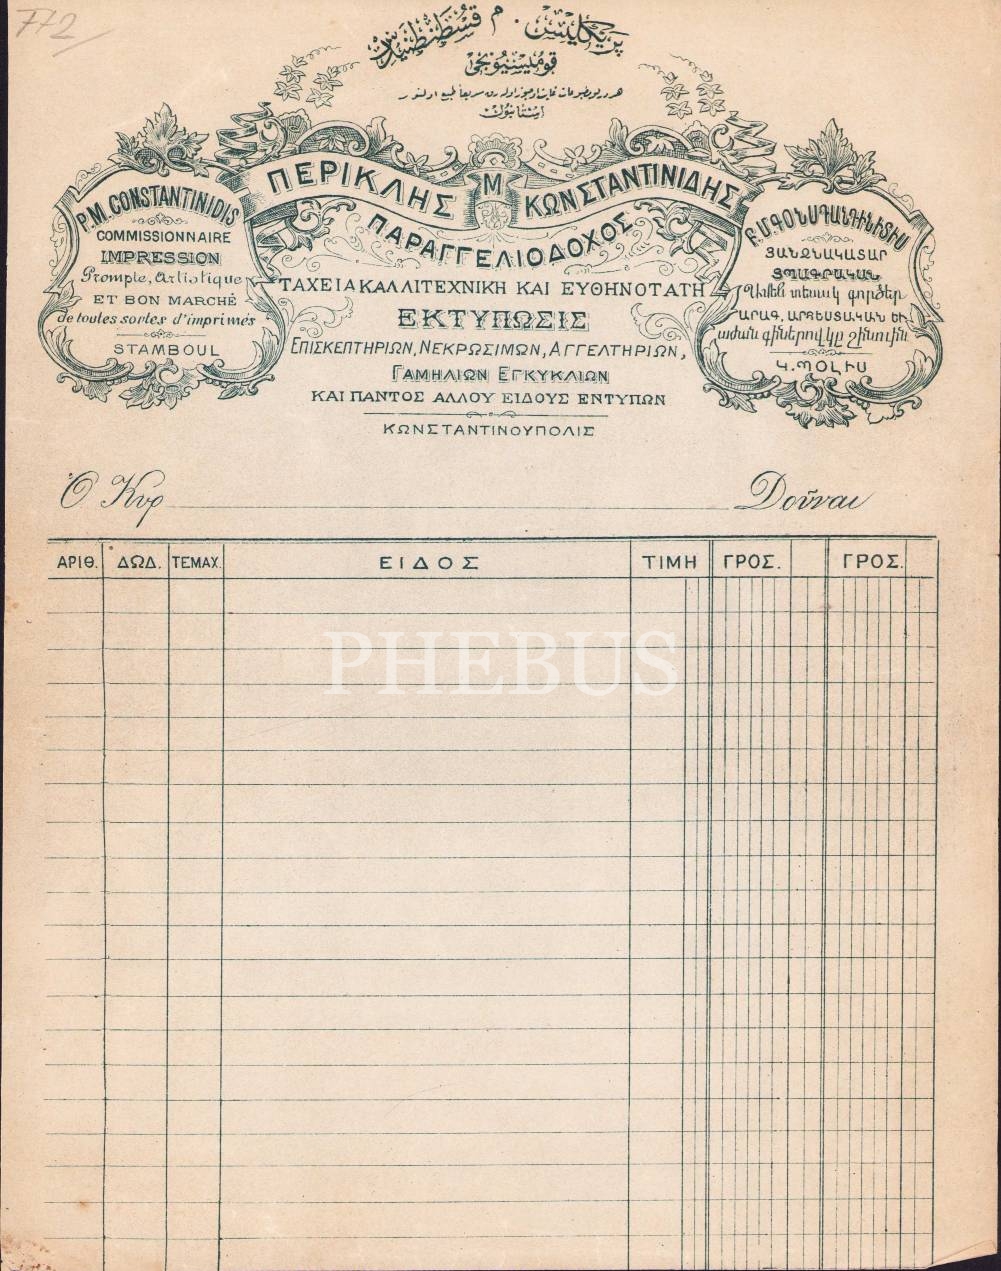 772
پریكلیس . م قسطنطنیدیس
قومیسیونجی
استانبول
ΠΕΡΙΚΛΗΣ Μ ΚΩΝΣΤΑΝΤΙΝΙΔΗΣ
ΠΑΡΑΓΓΕΛΙΟΔΟΧΟΣ
ΤΑΧΕΙΑ ΚΑΛΛΙΤΕΧΝΙΚΗ ΚΑΙ ΕΥΘΗΝΟΤΑΤΗ
ΕΚΤΥΠΩΣΙΣ
ΕΠΙΣΚΕΠΤΗΡΙΩΝ, ΝΕΚΡΩΣΙΜΩΝ, ΑΓΓΕΛΤΗΡΙΩΝ,
ΓΑΜΗΛΙΩΝ ΕΓΚΥΚΛΙΩΝ
ΚΑΙ ΠΑΝΤΟΣ ΑΛΛΟΥ ΕΙΔΟΥΣ ΕΝΤΥΠΩΝ
ΚΩΝΣΤΑΝΤΙΝΟΥΠΟΛΙΣ
P. M. CONSTANTINIDIS
COMMISSIONNAIRE
IMPRESSION
Prompte, Artistique
ET BON MARCHÉ
de toutes sortes d'imprimés
STAMBOUL
Բ. Մ. ԳՕՆՍԴԱՆԴԻՆԻՏԻՍ
ՅԱՆՁՆԱԿԱՏԱՐ
ՏՊԱԳՐԱԿԱՆ
Ամեն տեսակ գործեր
ԱՐԱԳ, ԱՐՒԵՍՏԱԿԱՆ ԵՒ
աժան գիներով կը շինուին
Կ. ՊՕԼԻՍ
Ὁ Κυρ Δοῦναι
ΑΡΙΘ. ΔΩΔ. ΤΕΜΑΧ. ΕΙΔΟΣ ΤΙΜΗ ΓΡΟΣ. ΓΡΟΣ.
PHEBUS